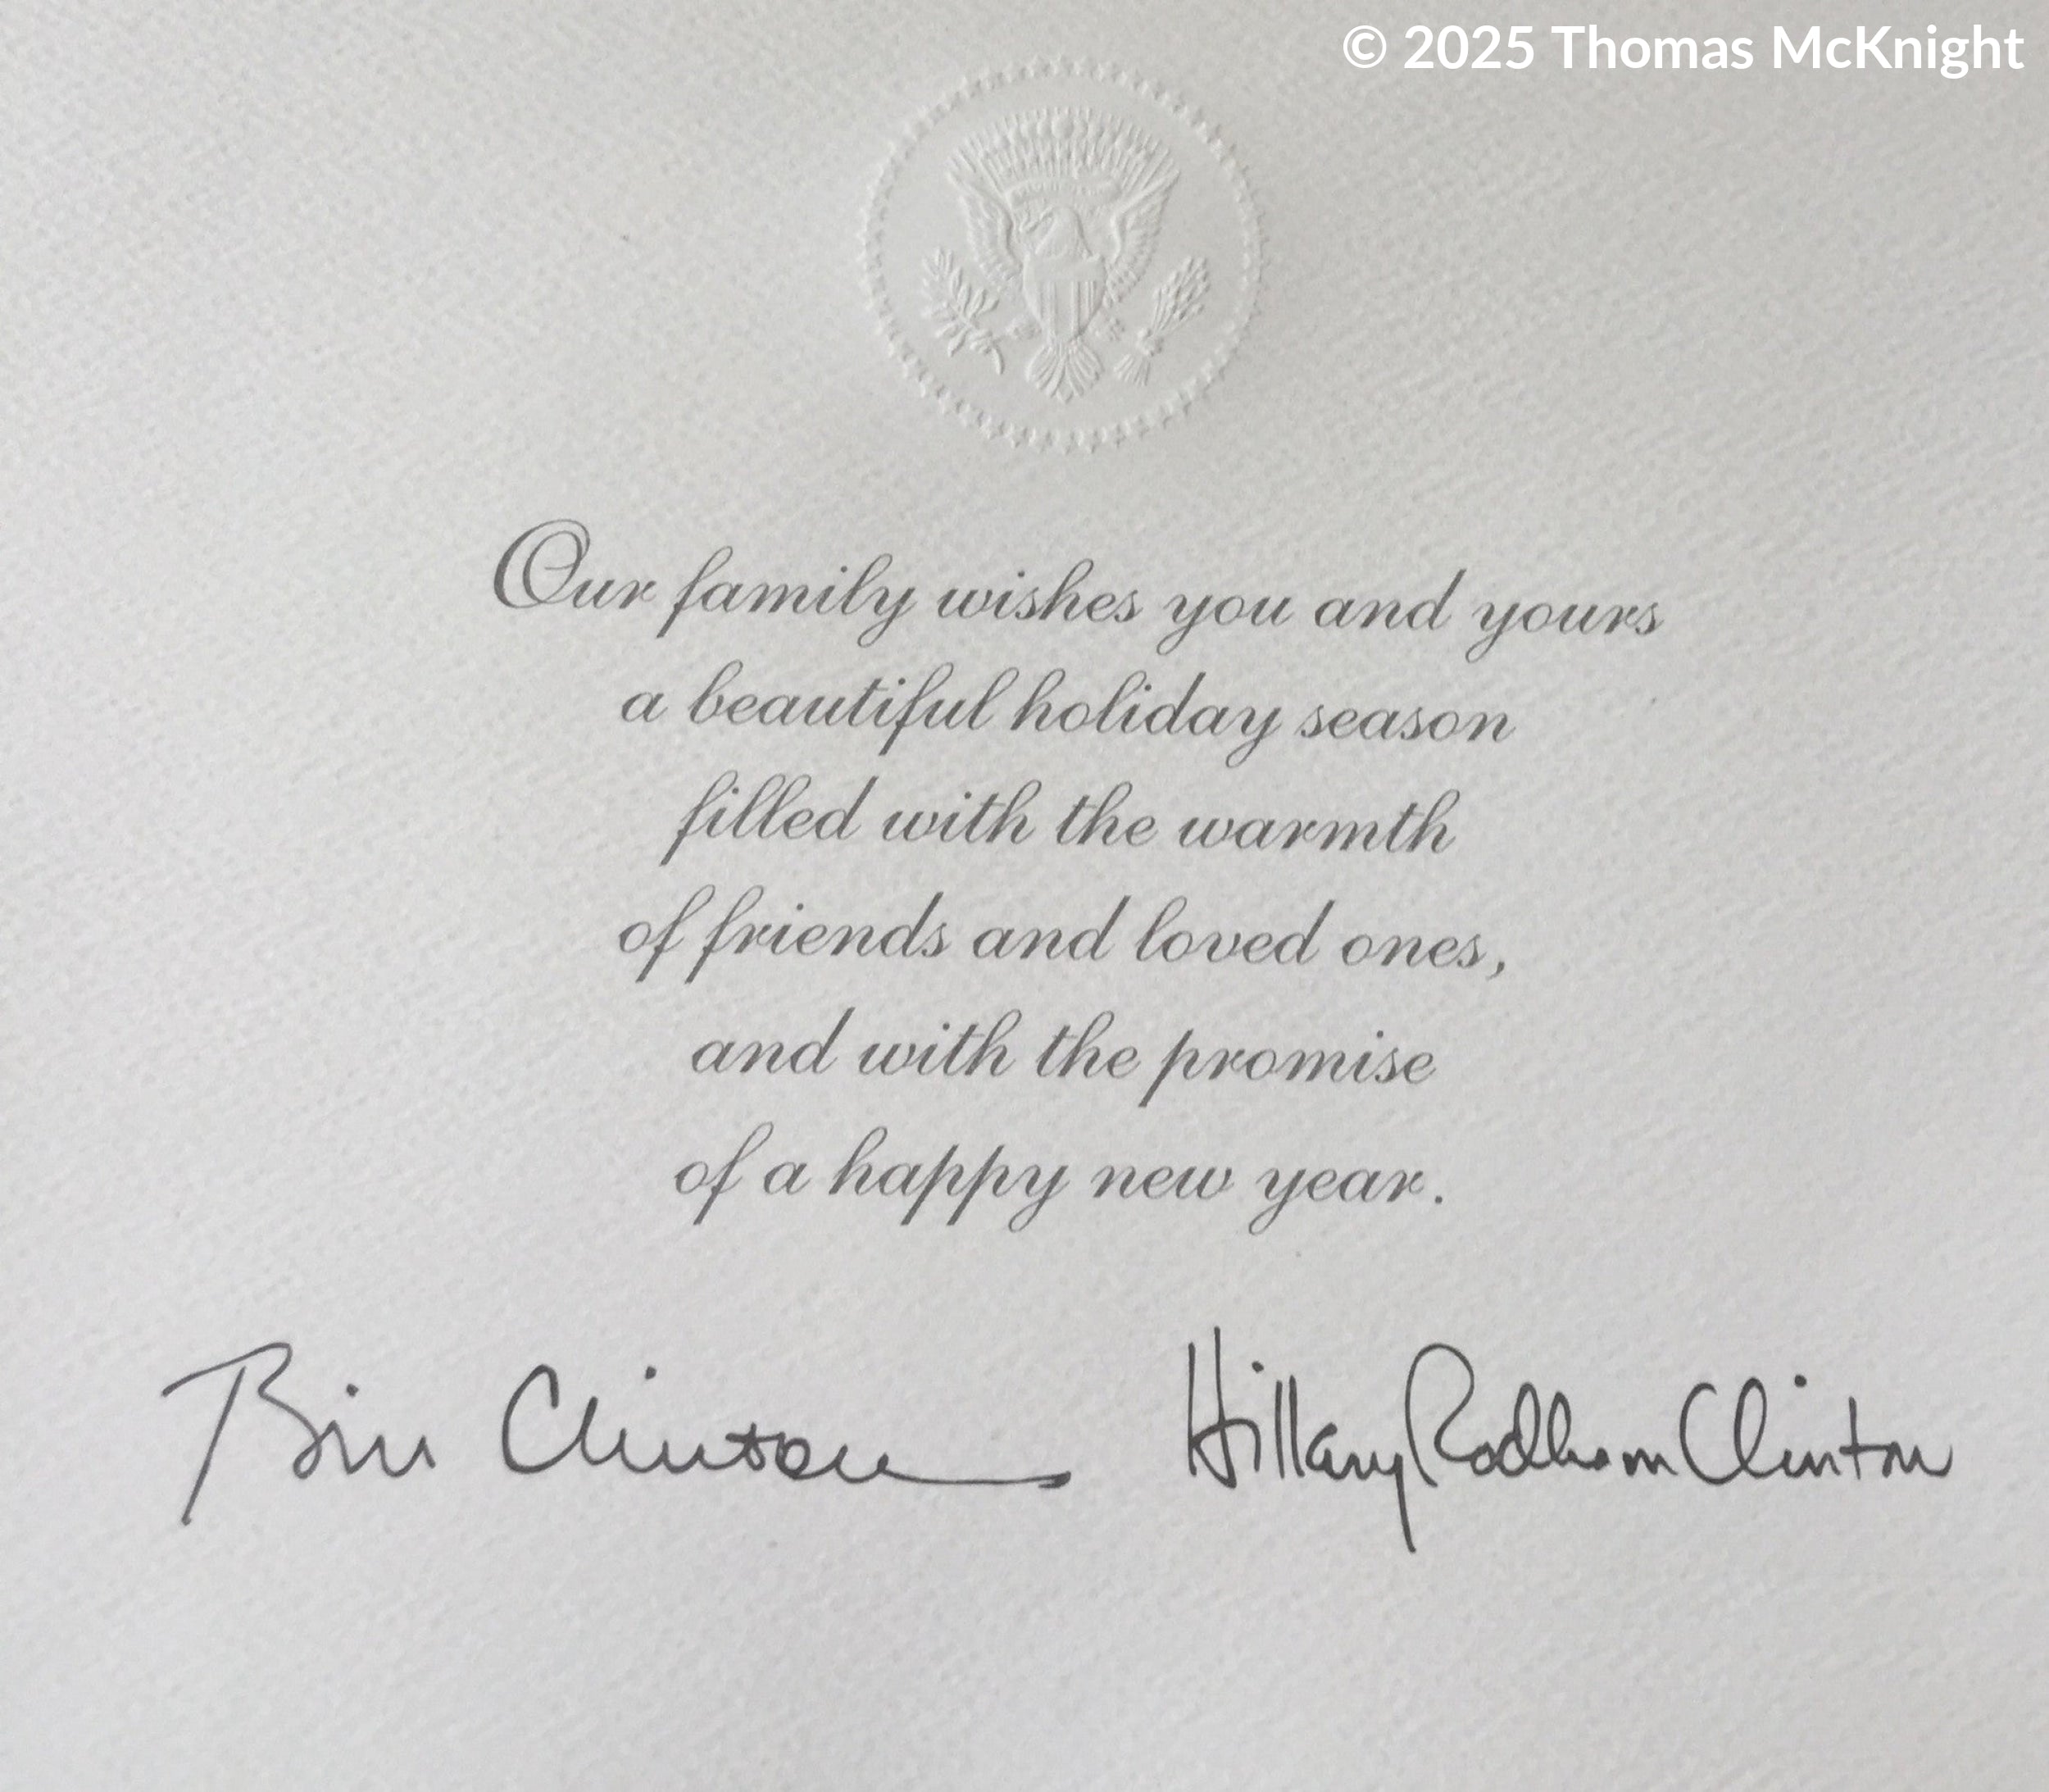 © 2025 Thomas McKnight
Our family wishes you and yours
a beautiful holiday season
filled with the warmth
of friends and loved ones,
and with the promise
of a happy new year.
Bill Clinton Hillary Rodham Clinton